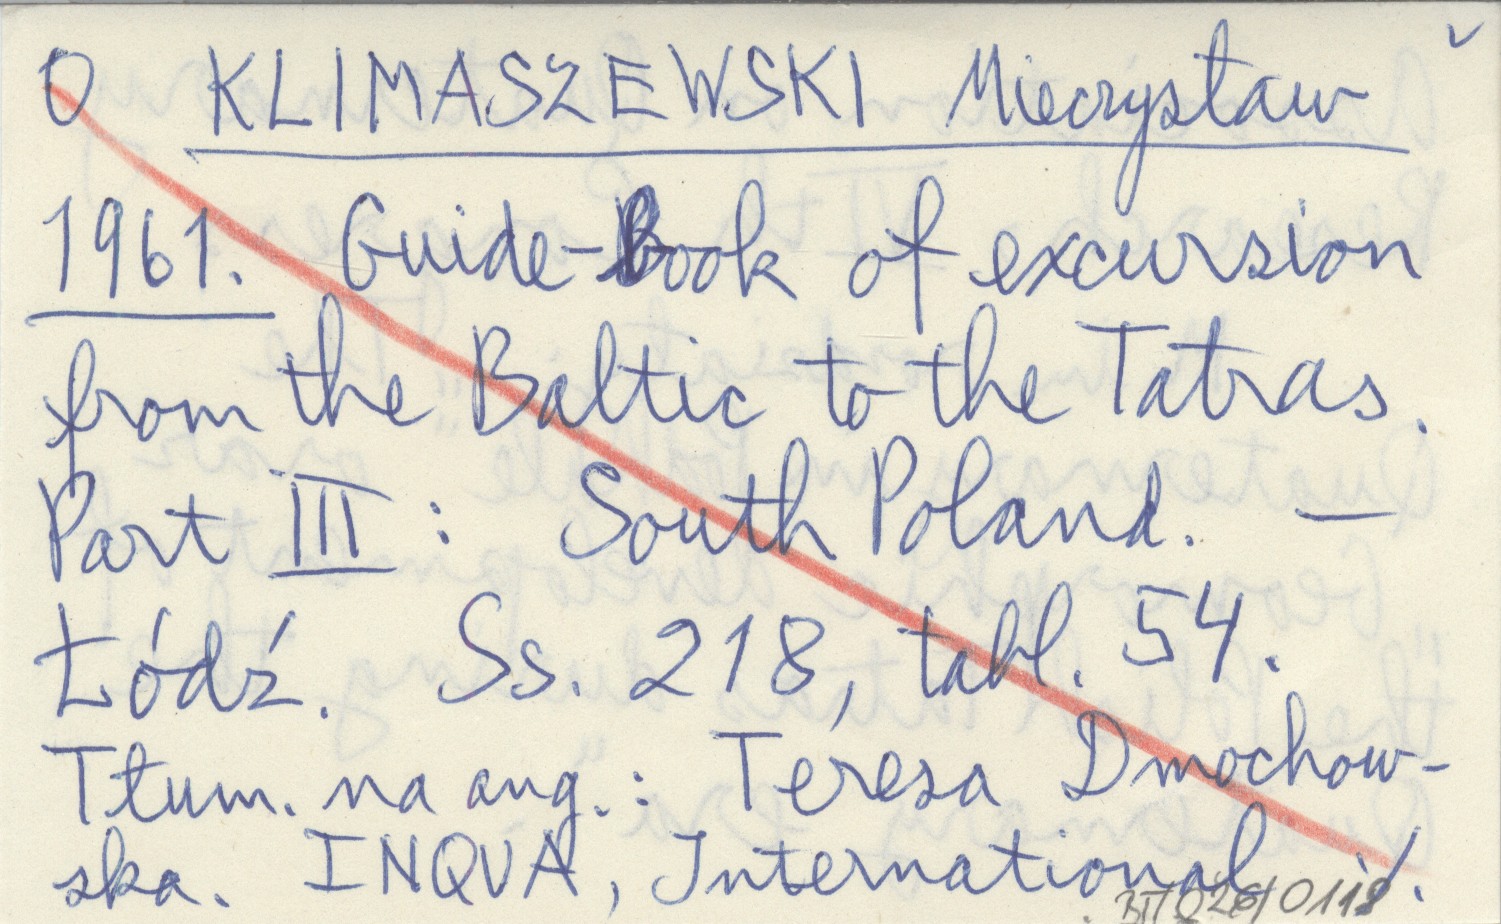 O KLIMASZEWSKI Mieczysław
1961. Guide-Book of excursion
from the Baltic to the Tatras.
Part III: South Poland. —
Łódź. Ss. 218, tabl. 54.
Tłum. na ang.: Teresa Dmochow-
ska. INQUA, International ./.
BT/026/0118